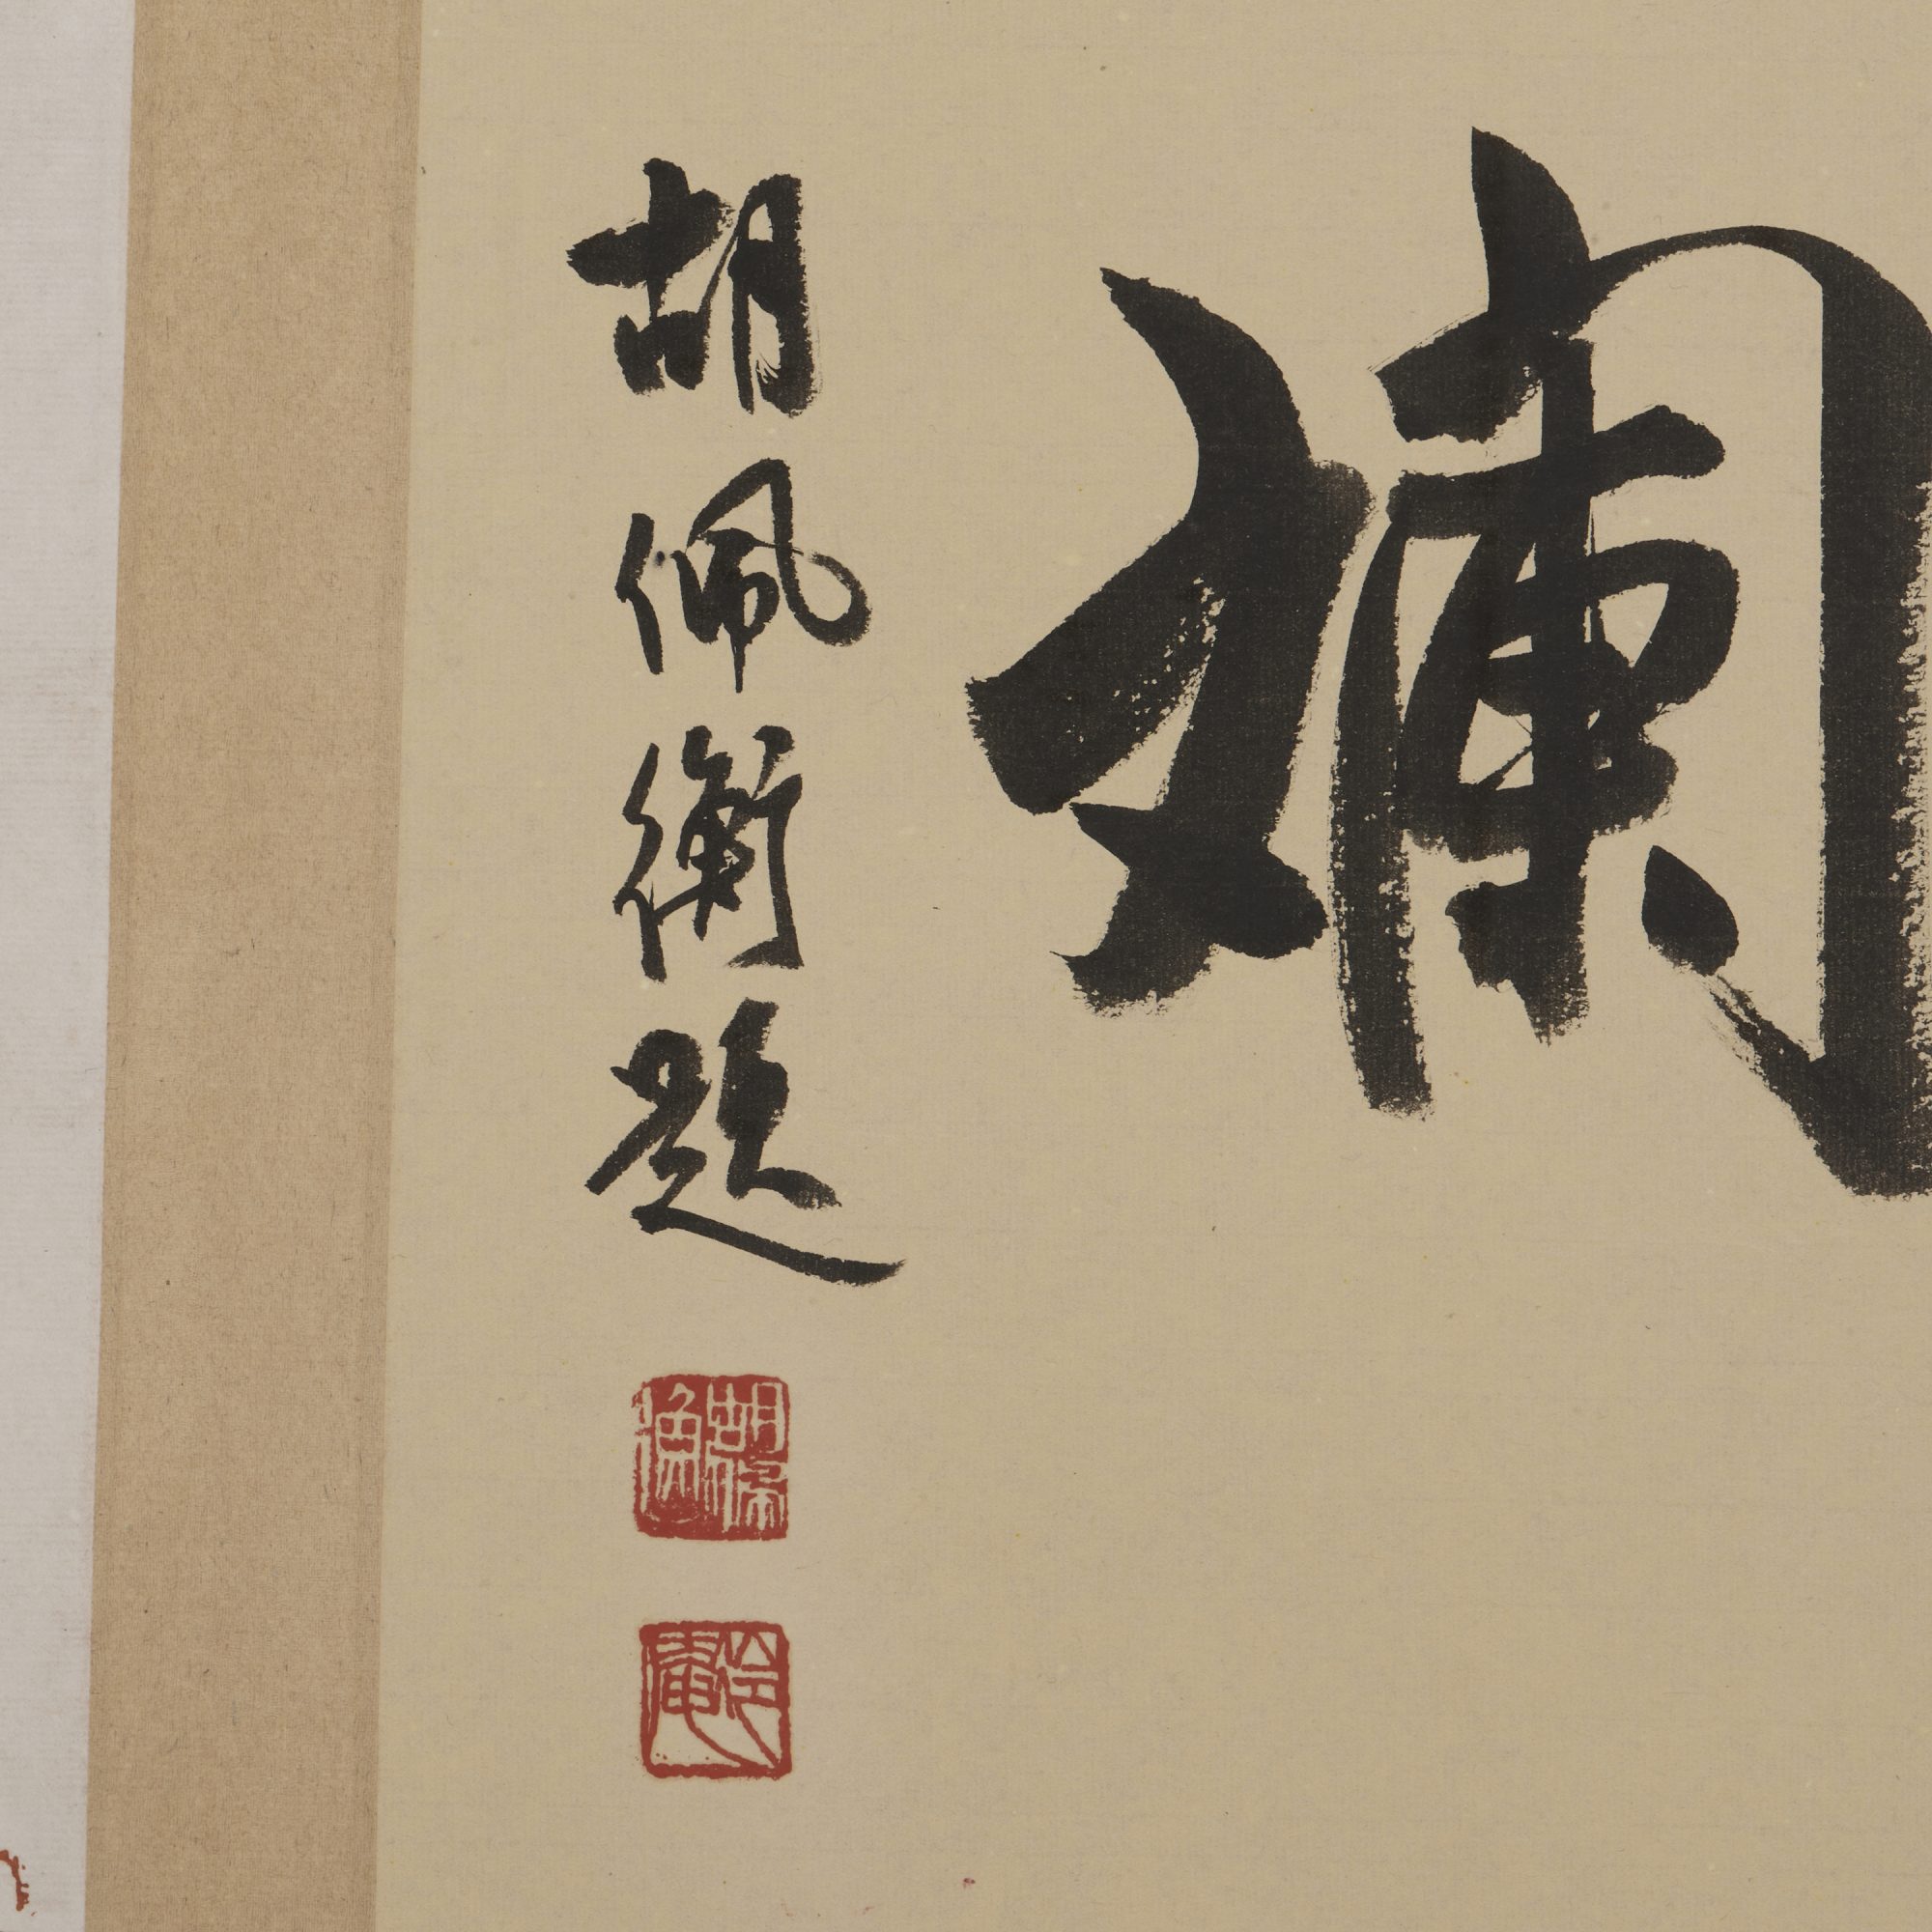 斕
胡佩衡題
胡佩衡
冷庵